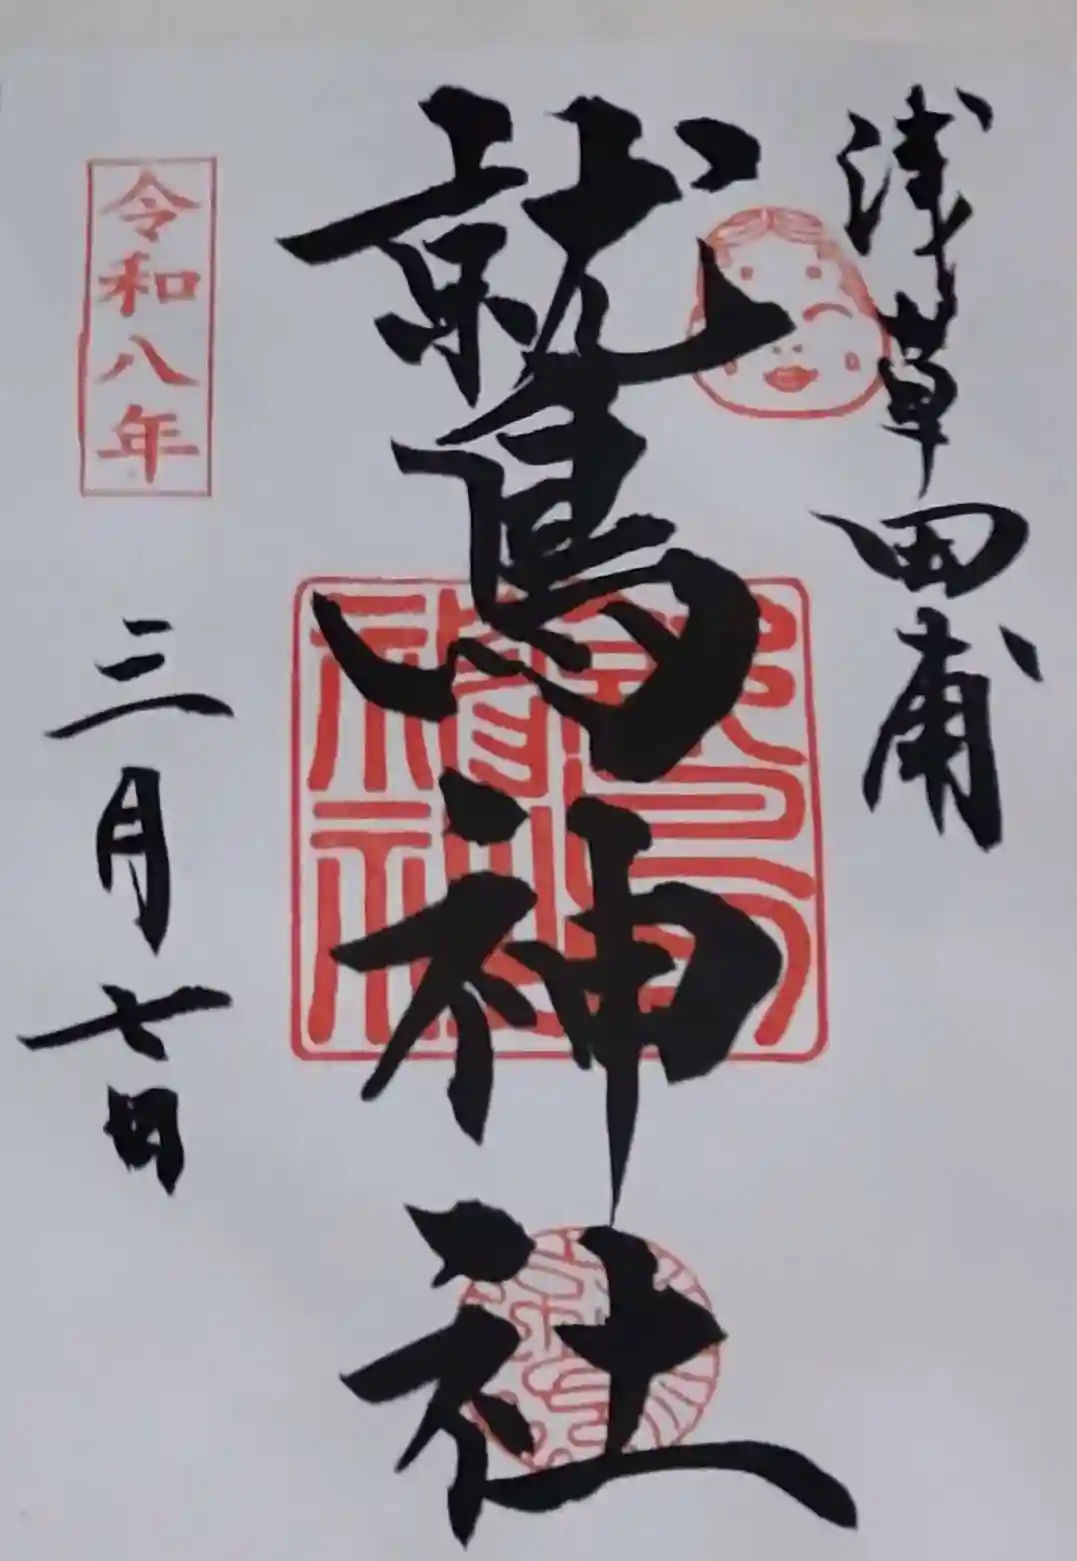 浅草田甫
鷲神社
令和八年
三月七日